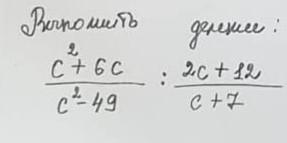 Выполнить деление:
(c² + 6c)/(c² - 49) : (2c + 12)/(c + 7)